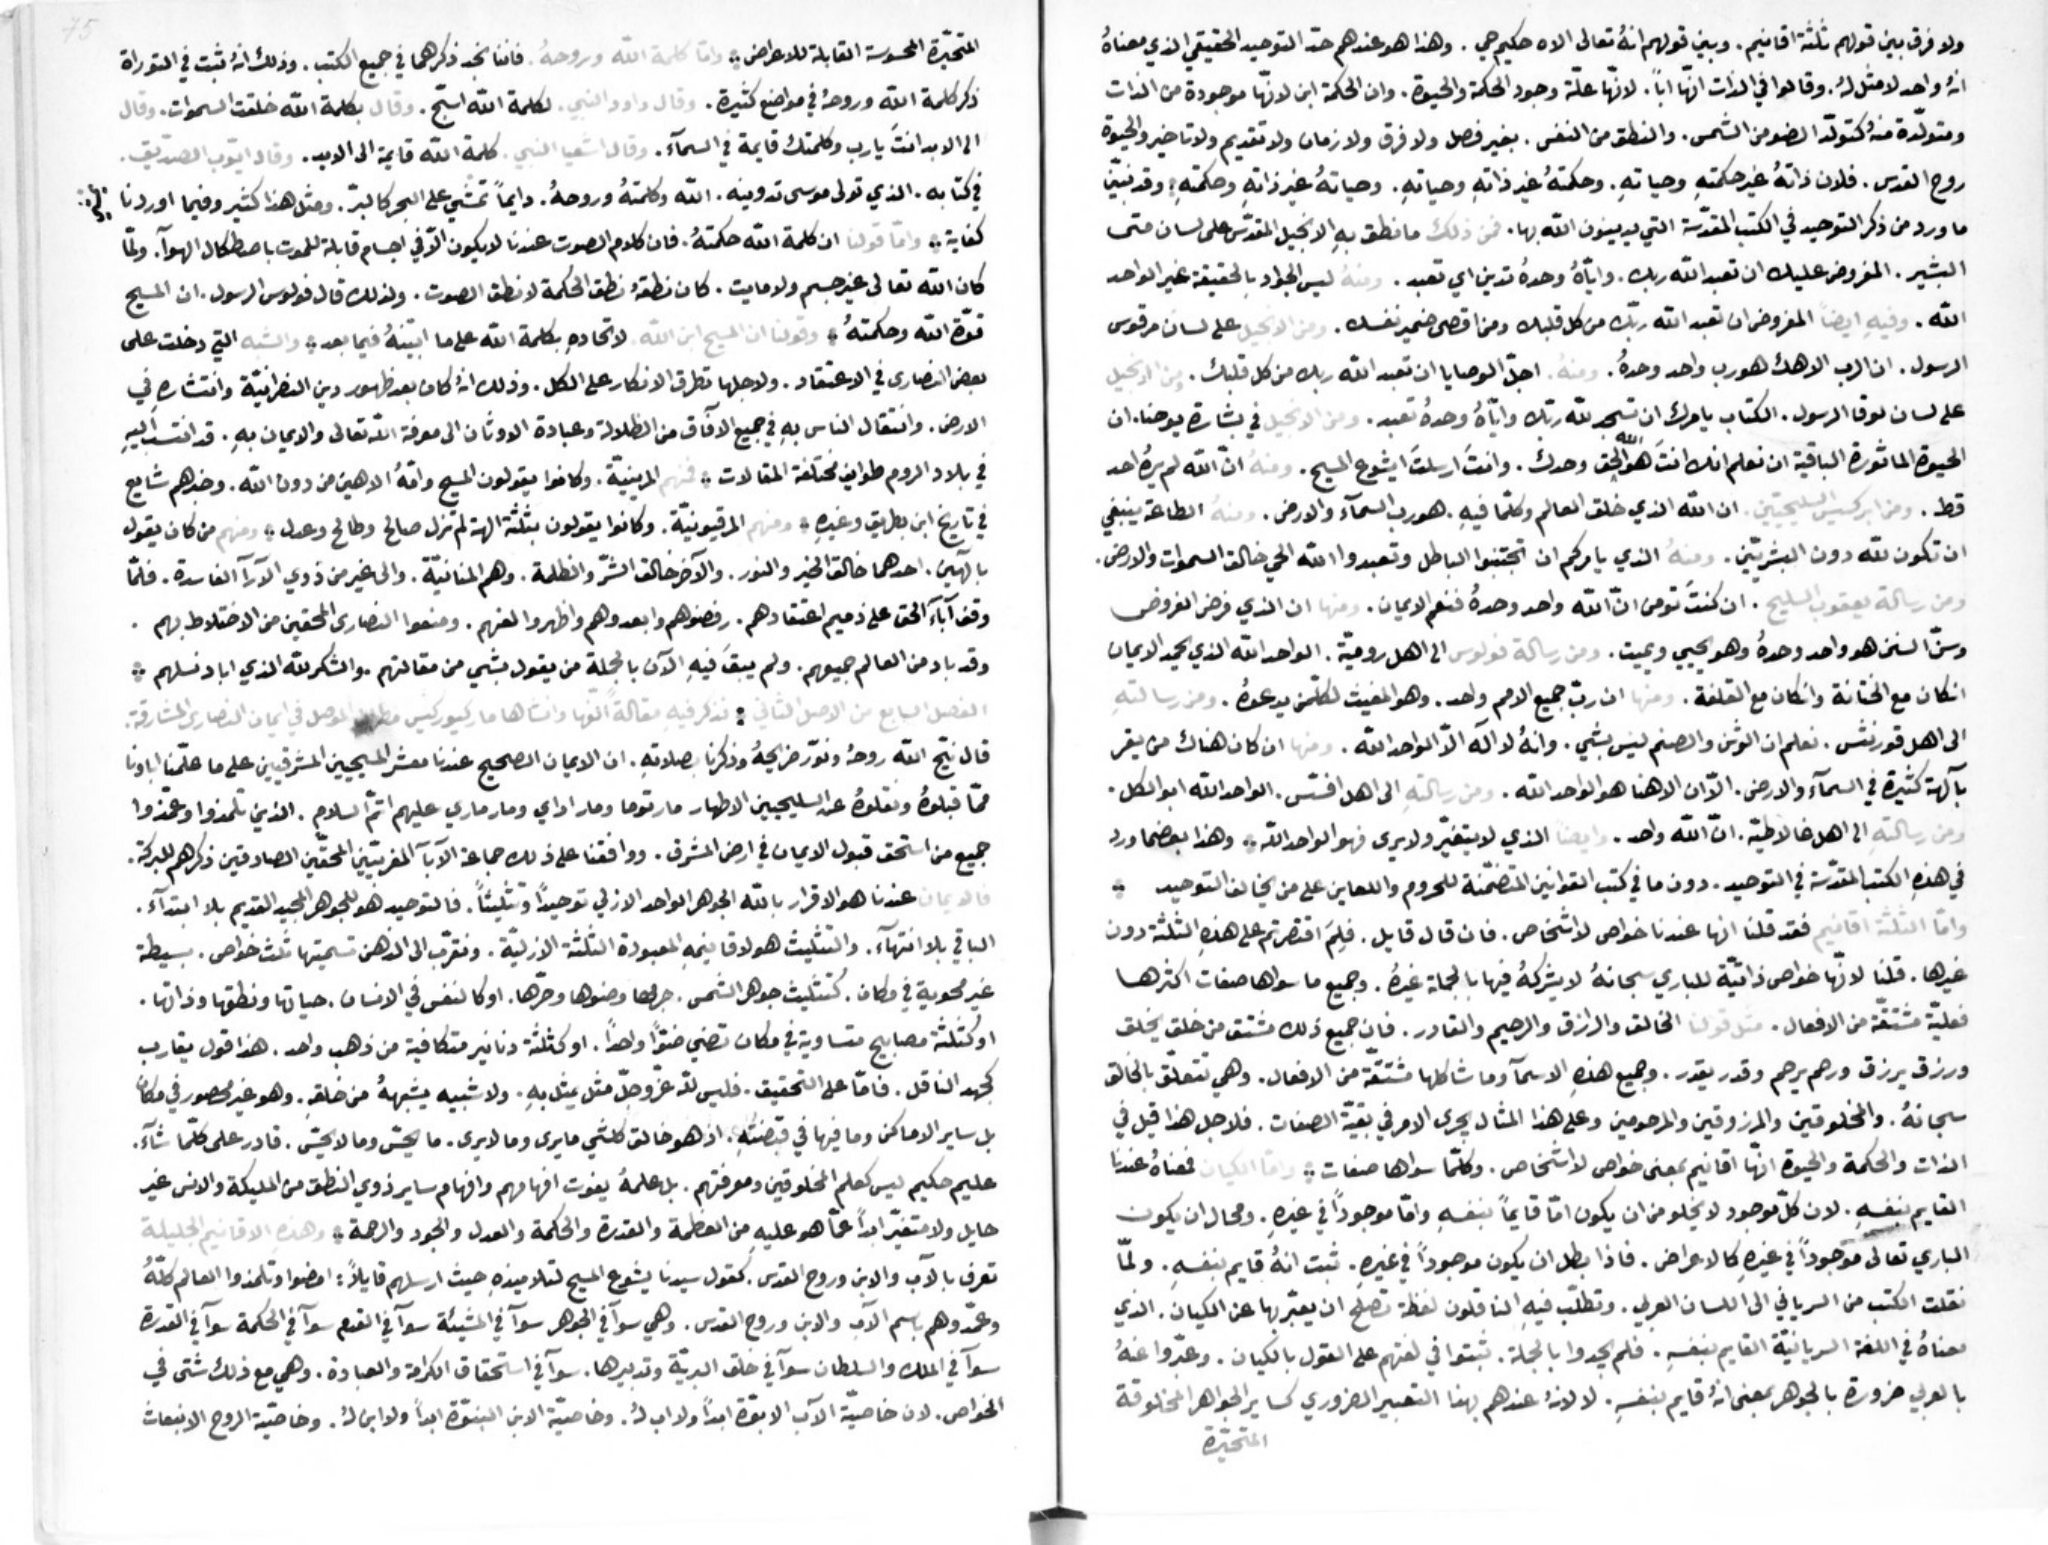 ولا فرق بين قولهم ثلثة اقانيم. وبين قولهم انهُ تعالى الاه حكيم حي. وهذا هو عندهم حدّ التوحيد الحقيقي الذي معناهُ
انهُ واحد لا مثل لهُ. وقالوا في الذات انّها اباً. لانّها علّة وجود الحكمة والحيوة. وان الحكمة ابن لانّها موجودة من الذات
ومتولّدة منهُ كتولّد الضو من الشمس. والنطق من النفس. بغير فصل ولا فرق ولا زمان ولا تقديم ولا تاخير والحيوة
روح القدس. فلان ذاتهُ غير حكمتهِ وحياتهِ. وحكمتهُ غير ذاتهِ وحياتهِ. وحياتهُ غير ذاتهِ وحكمتهِ: وقد نبيّن
ما ورد من ذكر التوحيد في الكتب المقدّسة التي يدينون الله بها. فمن ذلك ما نطق بهِ الانجيل المقدّس على لسان متى
البشير. المفروض عليك ان تعبد الله ربك. وايّاهُ وحدهُ تدين اي تعبد. ومنهُ ليس الجواد بالحقيقة غير الواحد
الله. وفيهِ ايضاً المفروض ان تعبد الله ربّك من كل قلبك ومن اقصى ضمير نفسك. ومن الانجيل على لسان مرقوس
الرسول. ان الرب الاهك هو رب واحد وحدهُ. ومنهُ. اجلّ الوصايا ان تعبد الله ربك من كل قلبك. ومن الانجيل
على لسان لوقا الرسول. الكتاب يامرك ان تسجد لله ربّك وايّاهُ وحدهُ تعبد. ومن الانجيل في بشارة يوحنا. ان
الحيوة الماثورة الباقية ان نعلم انك انتَ هو الله الحق وحدك. وانتَ ارسلتَ ايشوع المسيح. ومنهُ انّ الله لم يرهُ احد
قط. ومن ابركسيس السليحيّين. ان الله الذي خلق العالم وكلّما فيهِ. هو رب السمآء والارض. ومنهُ الطاعة ينبغي
ان تكون لله دون البشريّين. ومنهُ الذي يامركم ان تجتنبوا الباطل وتعبدوا الله الحي خالق السموات والارض.
ومن رسالة يعقوب السليح. ان كنتَ تومن انّ الله واحد وحدهُ فنعم الايمان. ومنها ان الذي فرض الفروض
وسنّ السنن هو واحد وحدهُ وهو يحيي ويميت. ومن رسالة فولوس الى اهل روميّة. الواحد الله الذي يجيد الايمان
انكان مع الختانة وانكان مع القلفة. ومنها ان ربّ جميع الامم واحد. وهو المغيث لكلّمن يدعوهُ. ومن رسالتهِ
الى اهل قورنثس. نعلم ان الوثن والصنم ليس بشي. وانهُ لا آله الّا الواحد الله. ومنها ان كان هناك من يقر
بآلهة كثيرة في السمآء والارض. الّا ان الاهنا هو الواحد الله. ومن رسالتهِ الى اهل افسّس. الواحد الله ابو الكل.
ومن رسالتهِ الى اهل غالاطيّة. انّ الله واحد. وايضاً الذي لا يتغيّر ولا يرى فهو الواحد الله: وهذا بعضما ورد
في هذهِ الكتب المقدّسة في التوحيد. دون ما في كتب القوانين المتضمّنة للحروم واللعاين على من يخالف التوحيد :
وامّا الثلثة اقانيم فقد قلنا انها عندنا خواص لا اشخاص. فان قال قايل. فلِمَ اقتصرتم على هذهِ الثلثة دون
غيرها. قلنا لانّها خواص ذاتيّة للباري سبحانهُ لا يشركهُ فيها بالجملة غيرهُ. وجميع ما سواها صفات اكثرها
فعليّة مشتقّة من الافعال. مثل قولنا الخالق والرازق والرحيم والقادر. فان جميع ذلك مشتق من خلق يخلق
ورزق يرزق ورحم يرحم وقدر يقدر. وجميع هذهِ الاسمآ وما شاكلها مشتقّة من الافعال. وهي تتعلّق بالخالق
سبحانهُ. والمخلوقين والمرزوقين والمرحومين وعلى هذا المثال يجرى الامر في بقيّة الصفات. فلاجل هذا قيل في
الذات والحكمة والحيوة انّها اقانيم بمعنى خواص لا اشخاص. وكلّما سواها صفات: وامّا الكيان فمعناهُ عندنا
القايم بنفسهِ. لان كلّ موجود لا يخلو من ان يكون امّا قايماً بنفسهِ وامّا موجوداً في غيرهِ. ومحال ان يكون
الباري تعالى موجوداً في غيرهِ كالاعراض. فاذا بطل ان يكون موجوداً في غيرهِ. ثبت انهُ قايم بنفسهِ. ولمّا
نقلت الكتب من السرياني الى اللسان العربي. وتطلّب فيهِ الناقلون لفظة تصلح ان يعبّر بها عن الكيان. الذي
معناهُ في اللغة السريانيّة القايم بنفسهِ. فلم يجدوا بالجملة. ثبتوا في لغتهم على القول بالكيان. وعبّروا عنهُ
بالعربي ضرورة بالجوهر بمعنى انهُ قايم بنفسهِ. لا لانهُ عندهم بهذا التعبير الضروري كساير الجواهر المخلوقة
المتحيّزة
75
المتحيّزة المحسوسة القابلة للاعراض: وامّا كلمة الله وروحهُ. فاننا نجد ذكرهما في جميع الكتب. وذلك انهُ ثبت في التوراة
ذكر كلمة الله وروحهُ في مواضع كثيرة. وقال داود النبي. لكلمة الله اسبّح. وقال بكلمة الله خلقت السموات. وقال
الى الابد انتَ يارب وكلمتك قايمة في السمآء. وقال اشعيا النبي. كلمة الله قايمة الى الابد. وقال ايّوب الصدّيق.
في كتابه. الذي تولى موسى تدوينه. الله وكلمتهُ وروحهُ. دايماً تمشي على البحر كالبرّ. ومثل هذا كثير وفيما اوردنا
كفاية: وامّا قولنا ان كلمة الله حكمتهُ. فان كلام الصوت عندنا لا يكون الّا في اجسام قابلة للموت باصطكاك الهوآء. ولمّا
كان الله تعالى غير جسم ولا مايت. كان نطقهُ نطق الحكمة لا نطق الصوت. ولذلك قال فولوس الرسول. ان المسيح
قوّة الله وحكمتهُ: وقولنا ان المسيح ابن الله. لاتحادهِ بكلمة الله على ما ابيّنهُ فيما بعد: والشبه التي دخلت على
بعض النصارى في الاعتقاد. ولاجلها تطرق الانكار على الكل. وذلك انهُ كان بعد ظهور دين النصرانيّة وانتشارهِ في
الارض. وانتقال الناس بهِ في جميع الآفاق من الظلالة وعبادة الاوثان الى معرفة الله تعالى والايمان بهِ. قد انتسب اليهِ
في بلاد الروم طوايف مختلفة المقالات: فمنهم المرينيّة. وكانوا يقولون المسيح وامّهُ الاهين من دون الله. وخبرهم شايع
في تاريخ ابن بطريق وغيرهِ: ومنهم المرقيونيّة. وكانوا يقولون بثلثة الهة لم تزل صالح وطالح وعدل: ومنهم من كان يقول
بالهين. احدهما خالق الخير والنور. والآخر خالق الشرّ والظلمة. وهم المنانيّة. والى غير من ذوي الآرآ الفاسدة. فلمّا
وقف آبآء الحق على ذميم اعتقادهم. رفضوهم وابعدوهم واظهروا لعنهم. ومنعوا النصارى المحقين من الاختلاط بهم.
وقد باد من العالم جميعهم. ولم يبقَ فيهِ الآن بالجملة من يقول بشي من مقالتهم. والشكر لله الذي اباد نسلهم :
الفصل السابع من الاصل الثاني: نذكر فيه مقالةً الّفها وانشاها مار كيوركيس مطران الموصل في ايمان النصارى المشارقة.
قال نيّح الله روحهُ ونوّر ضريحهُ وذكرنا بصلاتهِ. ان الايمان الصحيح عندنا معشر المسيحيين المشرقيين على ما علّمنا اباونا
ممّا قبلوهُ ونقلوهُ عن السليحيين الاطهار مار توما ومار اداي ومار ماري عليهم اتمّ السلام. الذين تلمذوا وعمّدوا
جميع من استحق قبول الايمان في ارض المشرق. ووافقنا على ذلك جماعة الآبآ المغربيّين المحقّين الصادقين ذكرهم للبركة.
فالايمان عندنا هو الاقرار بالله الجوهر الواحد الازلي توحيداً وتثليثاً. فالتوحيد هو للجوهر المجيد القديم بلا ابتدآء.
الباقي بلا انتهآء. والتثليث هو لاقانيمهِ المعبودة الثلثة الازليّة. ونقرّب الى الذهن تسميتها ثلث خواص. بسيطة
غير محوية في مكان. كتثليث جوهر الشمس. جرمها وضوها وحرّها. او كالنفس في الانسان. حياتها ونطقها وذاتها.
او كثلثة مصابيح متساوية في مكان تضي ضوّاً واحداً. او كثلثة دنانير متكافية من ذهب واحد. هذا قول يقارب
بجهد الناقل. فامّا على التحقيق. فليس لله عزّ وجلّ مثل يمثل بهِ. ولا شبيه يشبههُ من خلقهِ. وهو غير محصور في مكان
بل ساير الاماكن وما فيها في قبضتهِ. اذ هو خالق كلشي ما يرى وما لا يرى. ما يحسّ وما لا يحسّ. قادر على كلّما شآء.
عليم حكيم ليس كعلم المخلوقين ومعرفتهم. بل علمهُ يفوت افهامهم وافهام ساير ذوي النطق من المليكة والانس غير
حايل ولا متغيّر ابداً عمّا هو عليهِ من العظمة والقدرة والحكمة والعدل والجود والرحمة: وهذهِ الاقانيم الجليلة
تعرف بالآب والابن وروح القدس. كقول سيدنا يشوع المسيح لتلاميذهِ حيث ارسلهم قايلاً: امضوا وتلمذوا العالم كلّهُ
وعمّدوهم باسم الآب والابن وروح القدس. وهي سوآ في الجوهر سوآ في المشيئة سوآ في القدم سوآ في الحكمة سوآ في القدرة
سوآ في الملك والسلطان سوآ في خلق البريّة وتدبيرها. سوآ في استحقاق الكرامة والعبادة. وهي مع ذلك شتى في
الخواص. لان خاصيّة الآب الابوّة ابداً ولا اب لهُ. وخاصيّة الابن البنوّة ابداً ولا ابن لهُ. وخاصيّة الروح الانبعاث